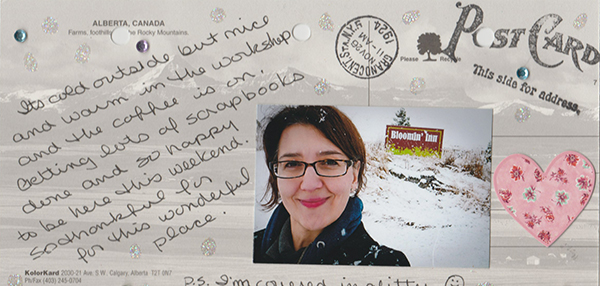 ALBERTA, CANADA
Farms, foothills the Rocky Mountains.
Its cold outside but nice
and warm in the workshop
and the coffee is on.
Getting lots of scrapbooks
done and so happy
to be here this weekend.
So thankful for
for this wonderful
place.
GRAND CENT. STA. N.Y.
NOV 20
11-AM
1924
Please Recycle
POST CARD
This side for address.
Bloomin' Inn
KolorKard 2030-21 Ave. S.W. Calgary, Alberta T2T 0N7
Ph/Fax (403) 245-0704
p.s. I'm covered in glitter